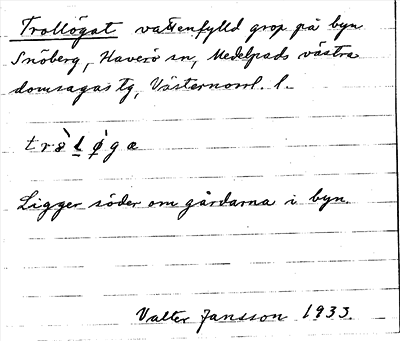 Trollögat vattenfylld grop på byn
Snöberg, Haverö sn, Medelpads västra
domsagas tg, Västernorrl. l.
Ligger söder om gårdarna i byn.
Valter Jansson 1933.